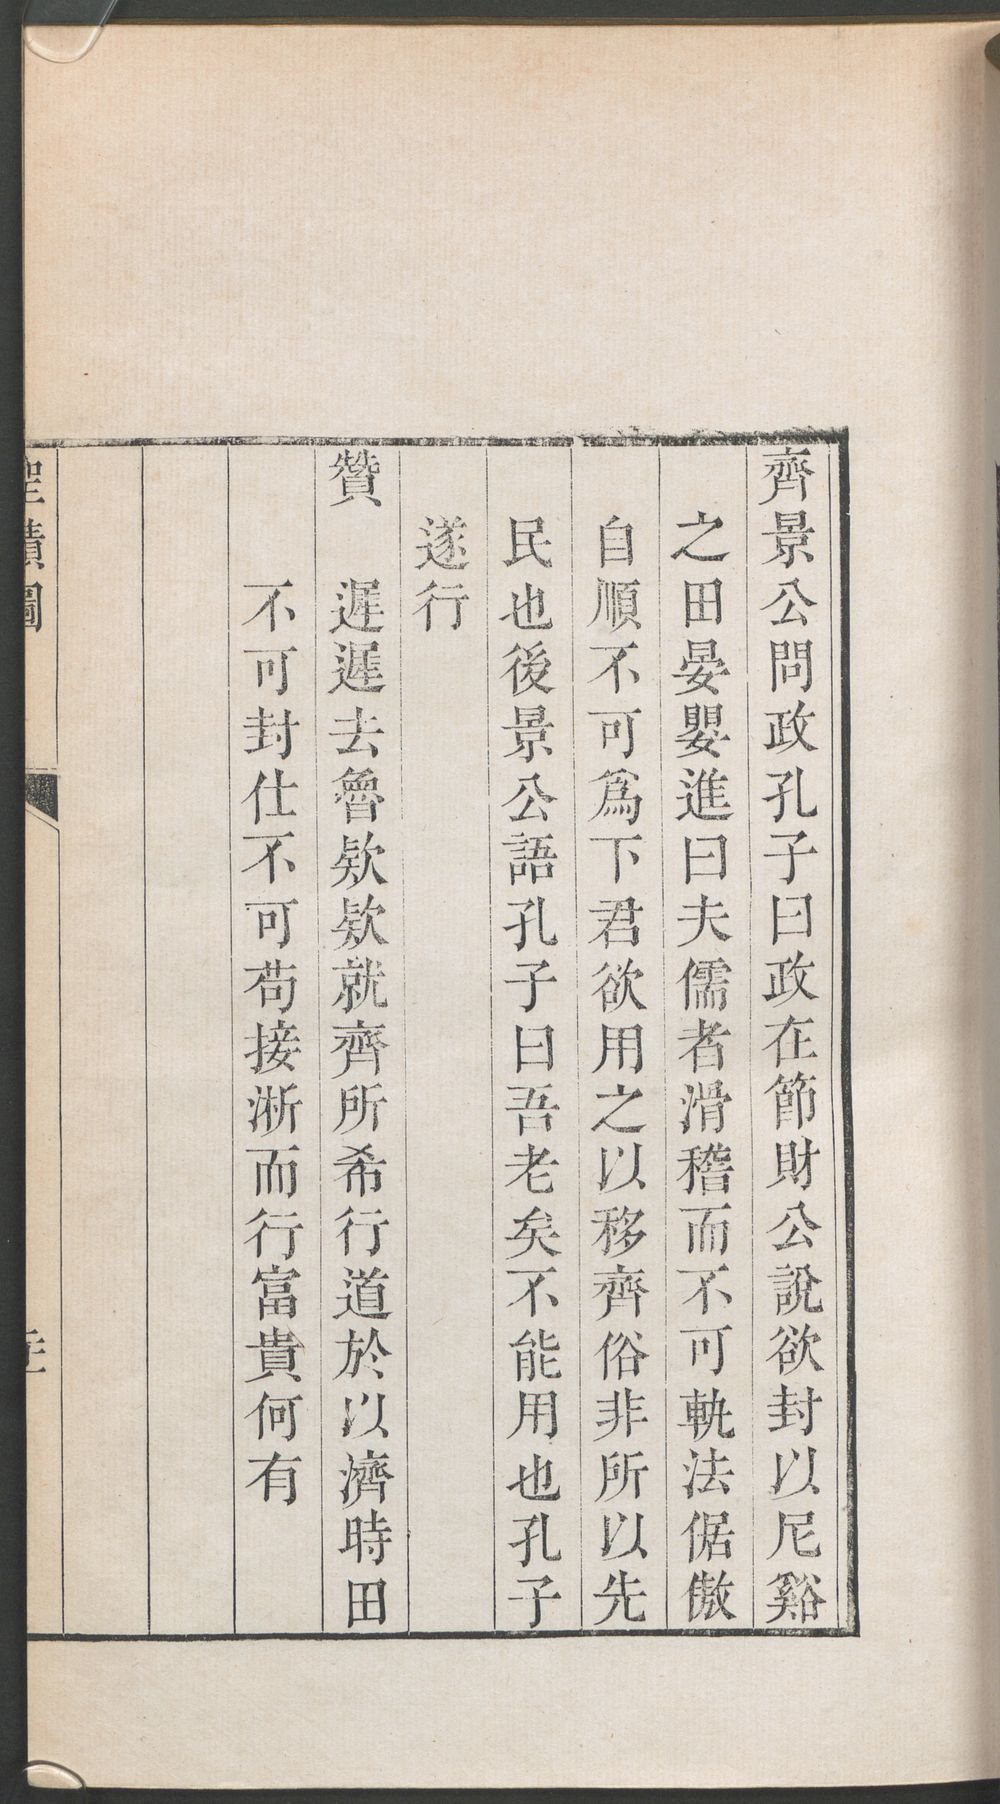 齊景公問政孔子曰政在節財公說欲封以尼谿
之田晏嬰進曰夫儒者滑稽而不可軌法倨傲
自順不可爲下君欲用之以移齊俗非所以先
民也後景公語孔子曰吾老矣不能用也孔子
遂行
贊　遲遲去魯欵欵就齊所希行道於以濟時田
不可封仕不可苟接淅而行富貴何有
聖蹟圖